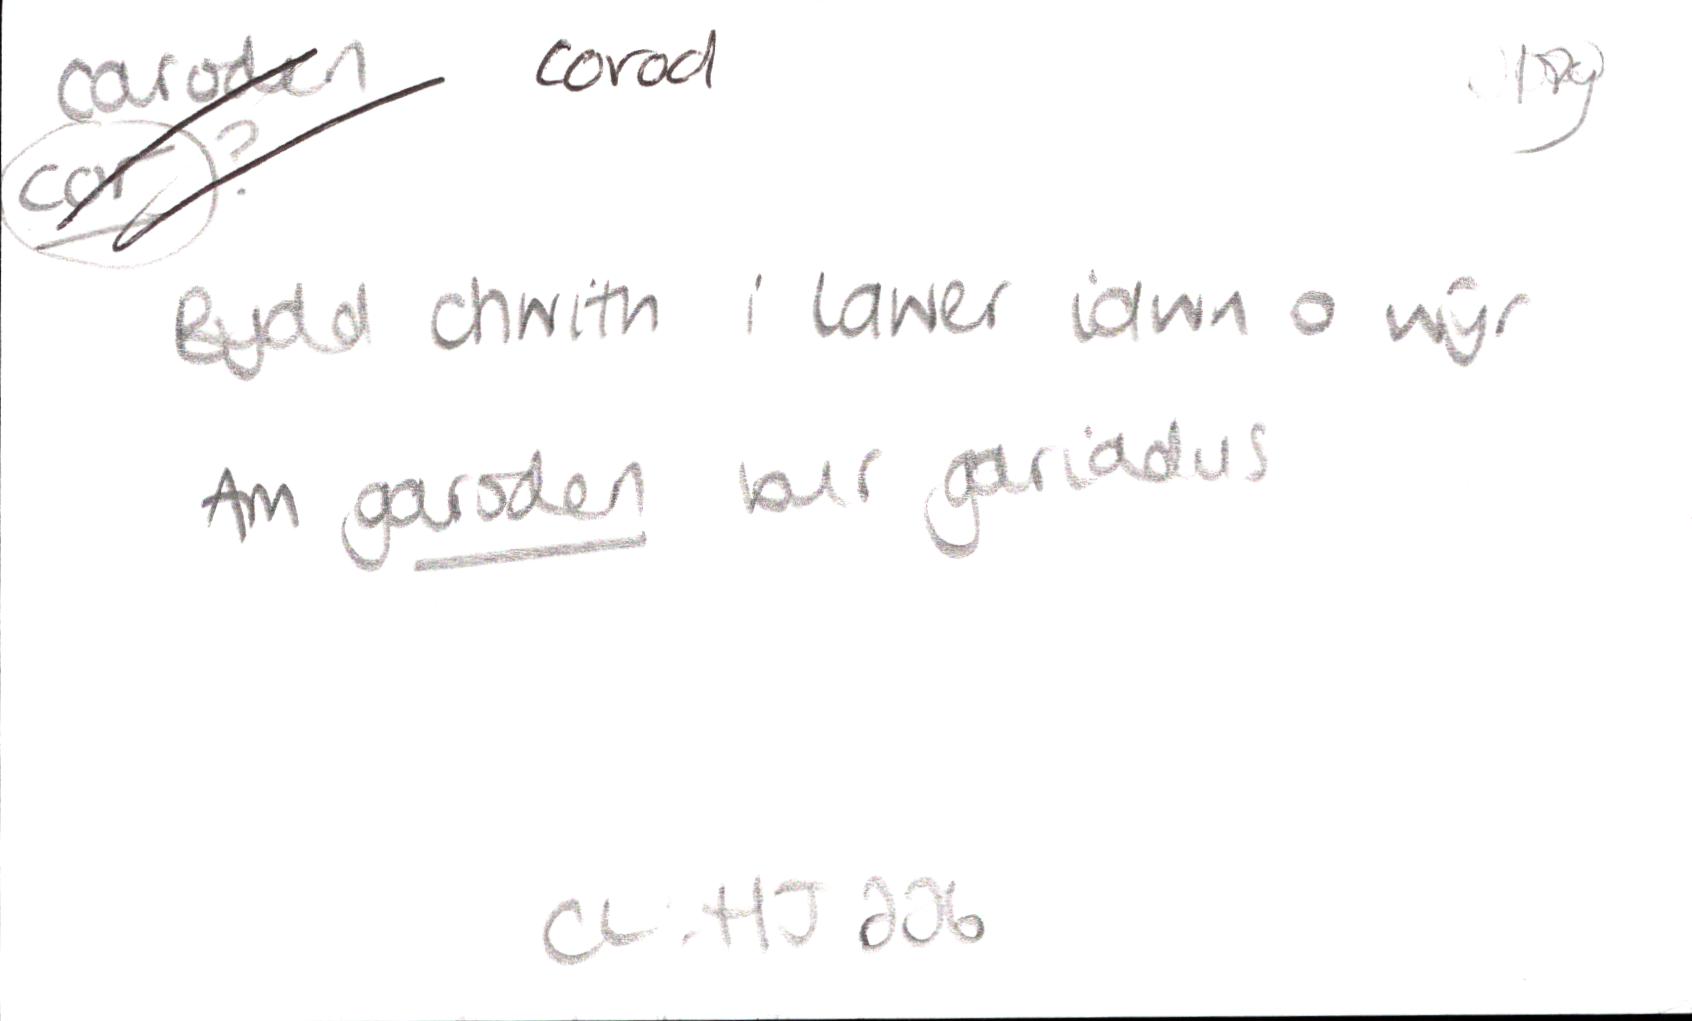 caroden corod
cor ?
Bydd chwith i lawer iawn o wŷr
Am garoden bur gariadus
CL: HJ 206